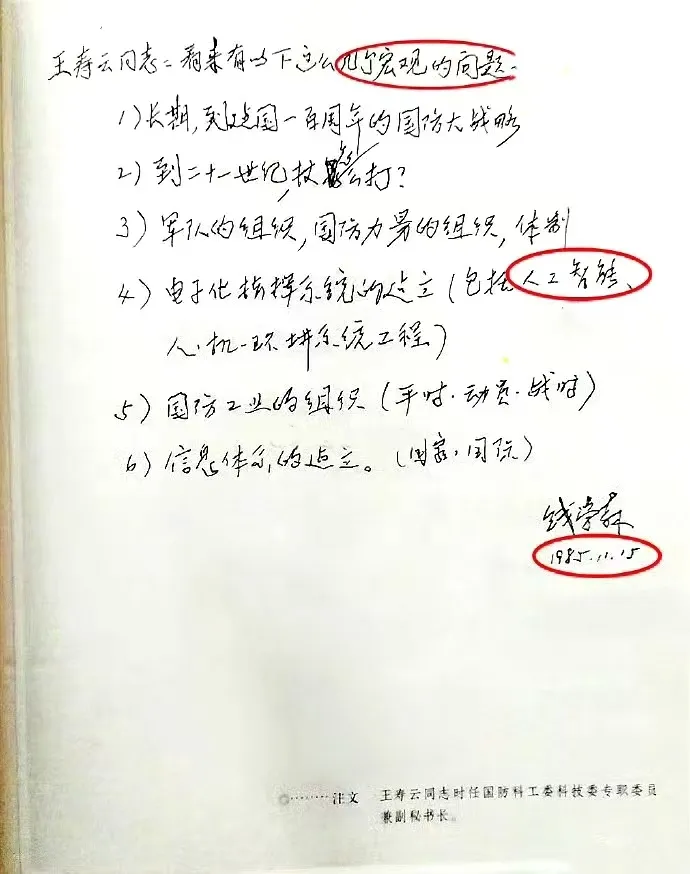 王寿云同志：看来有以下这么几个宏观的问题：
1）长期，到建国一百周年的国防大战略
2）到二十一世纪，仗怎么打？
3）军队的组织，国防力量的组织，体制
4）电子化指挥系统的建立（包括人工智能、
人-机-环境系统工程）
5）国防工业的组织（平时·动员·战时）
6）信息体系的建立。（国家·国际）
钱学森
1985.11.15
注文 王寿云同志时任国防科工委科技委专职委员
兼副秘书长。